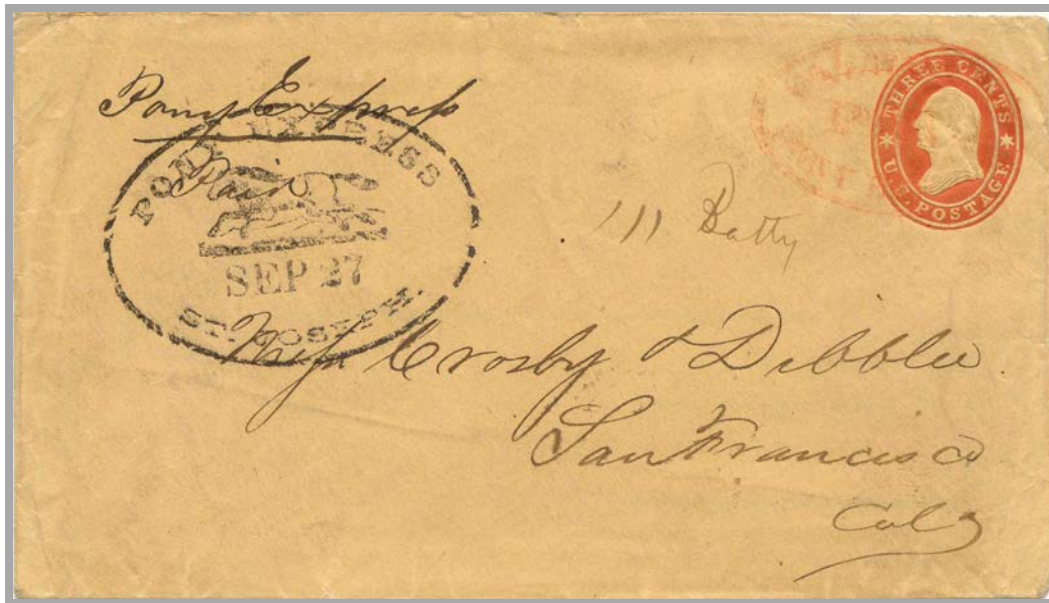 Pony Express
Paid
PONY EXPRESS
SEP 27
ST. JOSEPH.
THREE CENTS
U.S. POSTAGE
111 Batty
Messrs Crosby & Dibblee
San Francisco
Cal